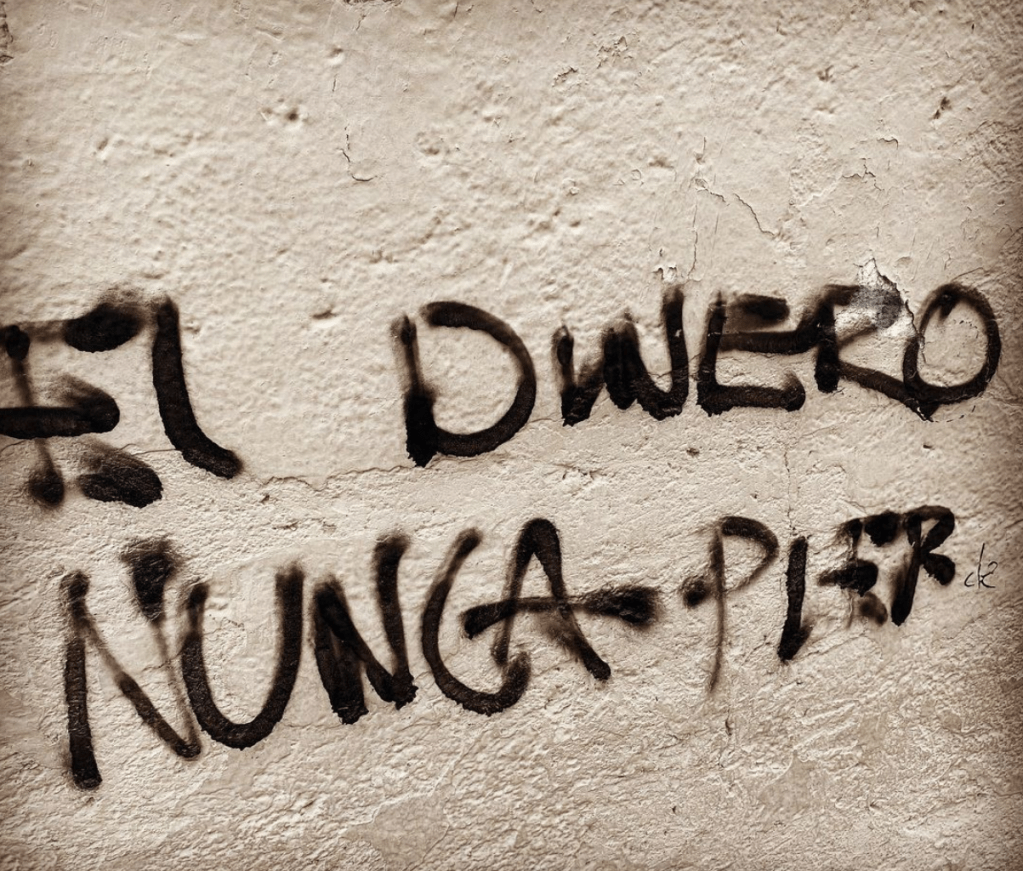 EL DINERO
NUNCA PIERde